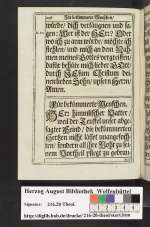 Für bekümmerte Menschen.
würde/ dich verläugnen und sa-
gen: Wer ist der HErr? Oder
wo ich zu arm würde/ möchte ich
stehlen/ und mich an dem Nah-
men meines Gottes vergreiffen/
dafür behüte mich lieber GOtt/
durch JEsum Christum dei-
nen lieben Sohn/ unsern HErrn/
Amen.
Für bekümmerte Menschen.
HErr himmlischer Vatter/
weil der Teuffel unser abge-
sagter Feind/ die bekümmerten
Hertzen nicht lässet unangefoch-
ten/ sondern all ihre Noht zu sei-
nem Vortheil pflegt zu gebrau-
Herzog August Bibliothek Wolfenbüttel
Signatur: 216.20 Theol.
http://diglib.hab.de/drucke/216-20-theol/start.htm